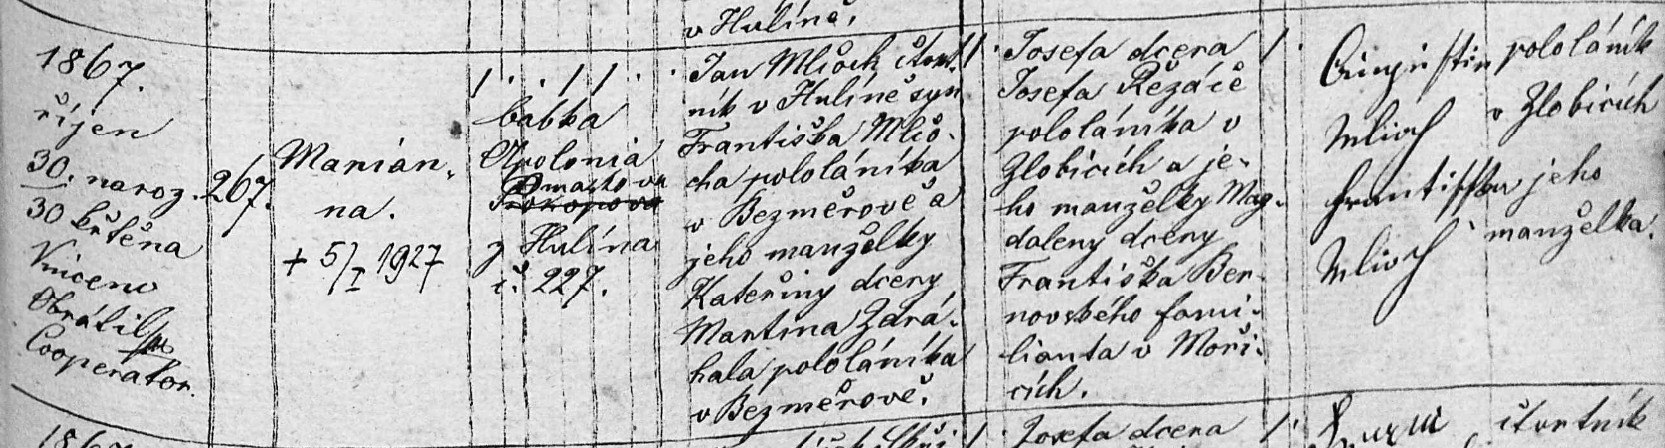 v Hulíně.
1867.
říjen
30. naroz.
30 křtěna
Vincenc
Obrátil
Cooperator.
267.
Marian,
na.
+ 5/I 1927
babka
Apolonia
z Hulína
č. 227.
Jan Mlčoch čtvrt,
ník v Hulíně syn
Františka Mlčo,
cha pololáníka
v Bezměrově a
jeho manželky
Kateřiny dcery
Martina Zdrá,
hala pololáníka
v Bezměrově.
Josefa dcera
Josefa Řezáče
pololáníka v
Zlobicích a je,
ho manželky Mag,
daleny dcery
Františka Ber
novského fami,
lianta v Moři,
cích.
Augustin pololáník
Mlčoch v Zlobicích
Františka jeho
Mlčoch manželka.
1867
Josefa dcera
čtvrtník